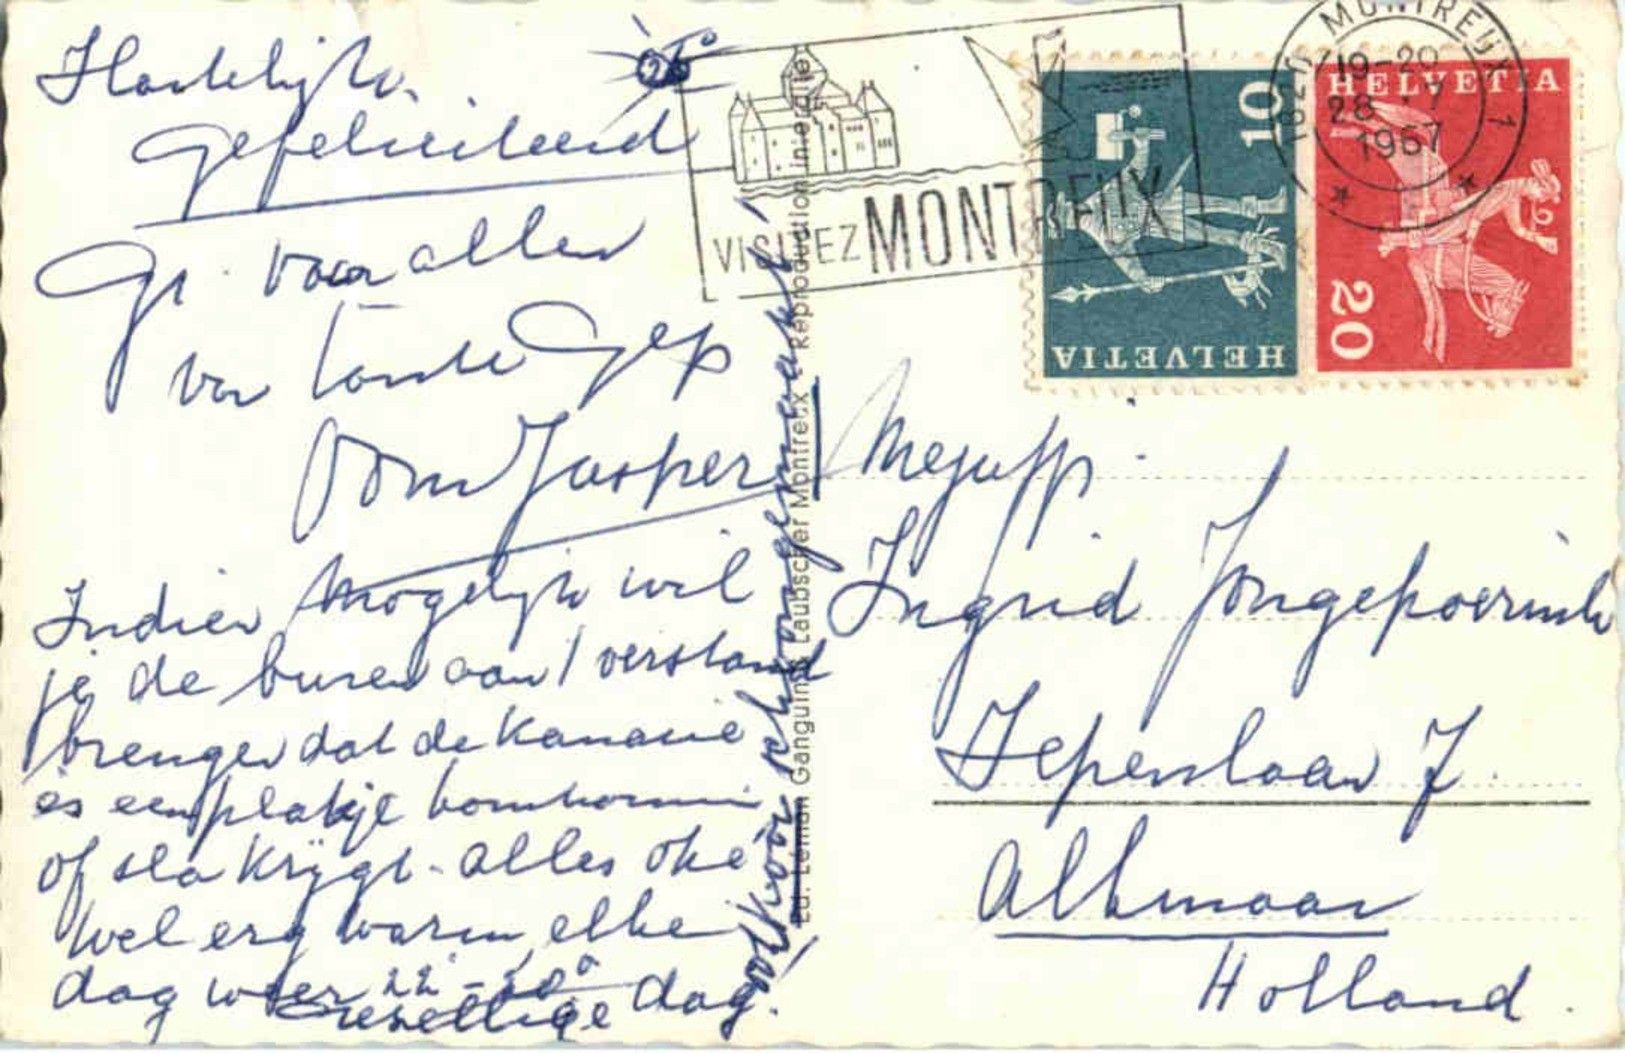 Hartelijk
gefeliciteerd
Gr. voor allen
van tante Gep
Oom Jasper
Indien mogelijk wil
je de buren aan 't verstand
brengen dat de Kanarie
es een plakje komkommer
of sla krijgt. alles oké
wel erg warm, elke
dag weer 22 - 30°
Gezellige dag.
schoongemaakt!
VISITEZ MONTREUX
1820 MONTREUX 1
19-20
28.7
1967
10
HELVETIA
HELVETIA
20
Ed. Léman Ganguin & Laubscher Montreux Reproduction interdite
Mejuffr.
Ingrid Jongepoerink
Iepenlaan 7.
Alkmaar
Holland.